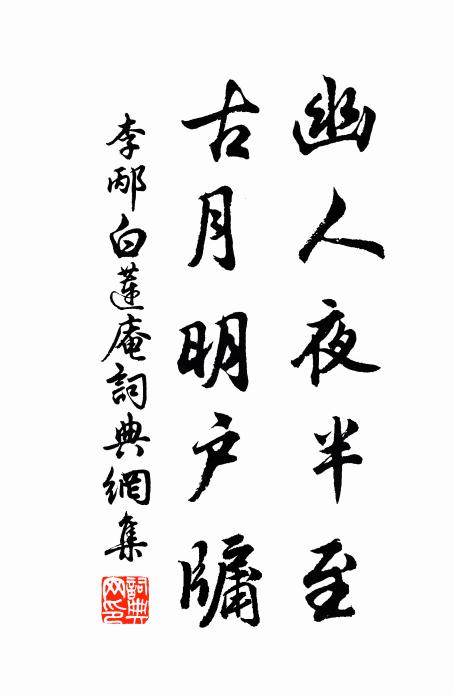 幽人夜半至
古月明户牖
李邴白蓮庵詞典網集
詞典
网印